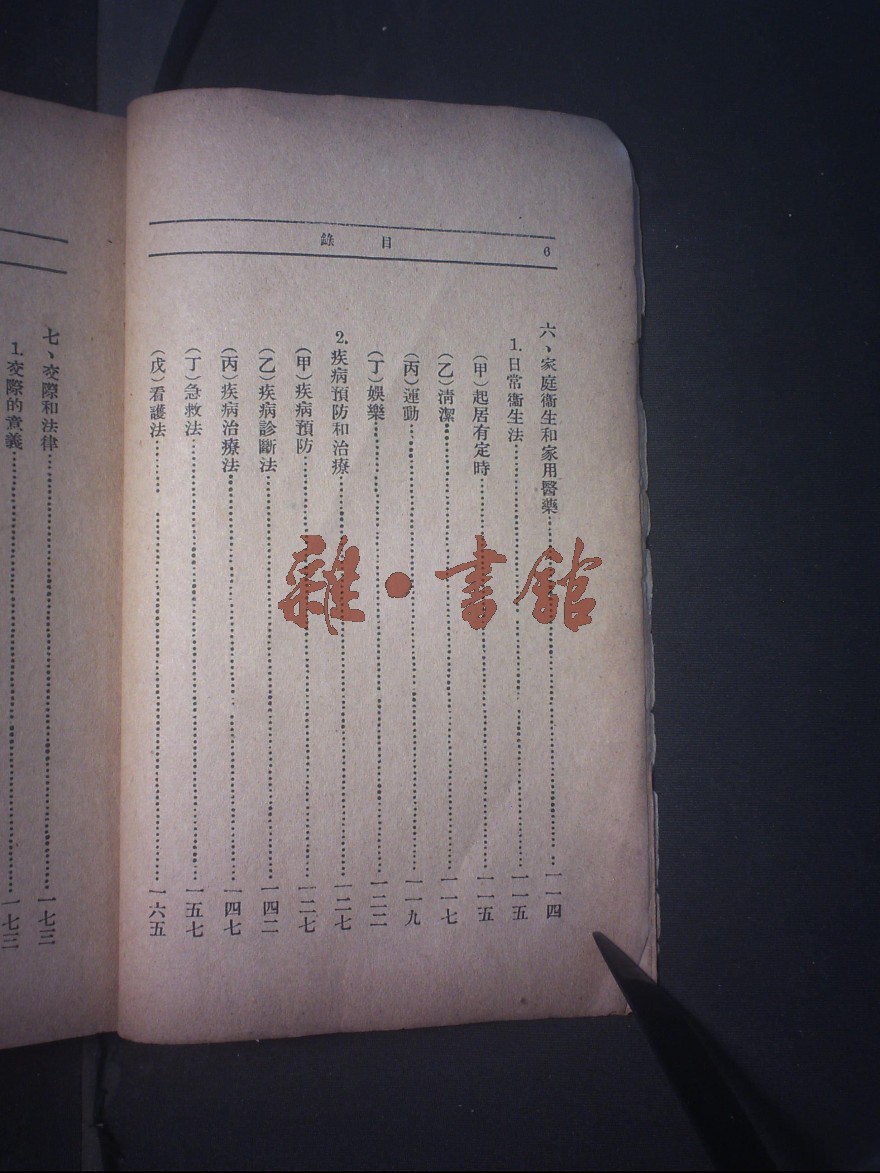 目錄
6
六、家庭衞生和家用醫藥……一一四
1.日常衞生法……一一五
（甲）起居有定時……一一五
（乙）淸潔……一一七
（丙）運動……一一九
（丁）娛樂……一二二
2.疾病預防和治療……一二七
（甲）疾病預防……一二七
（乙）疾病診斷法……一四二
（丙）疾病治療法……一四七
（丁）急救法……一五七
（戊）看護法……一六五
七、交際和法律……一七三
1.交際的意義……一七三
雜·書館